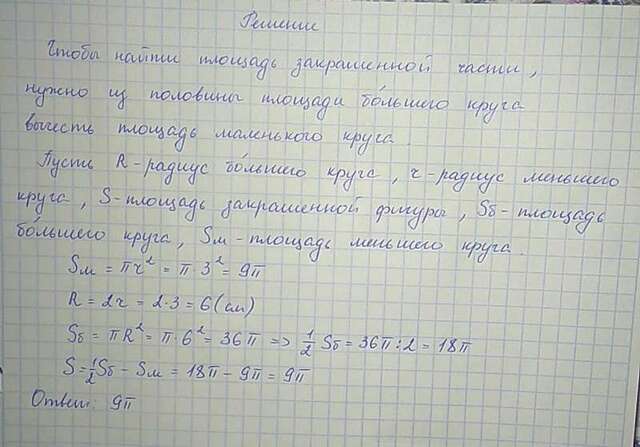 Решение
Чтобы найти площадь закрашенной части,
нужно из половины площади бо́льшего круга
вычесть площадь маленького круга.
Пусть R-радиус бо́льшего круга, r-радиус меньшего
круга, S-площадь закрашенной фигуры, Sб-площадь
бо́льшего круга, Sм-площадь меньшего круга.
Sм = πr² = π·3² = 9π
R = 2r = 2·3 = 6(см)
Sб = πR² = π·6² = 36π => 1/2 Sб = 36π:2 = 18π
S = 1/2 Sб - Sм = 18π - 9π = 9π
Ответ: 9π